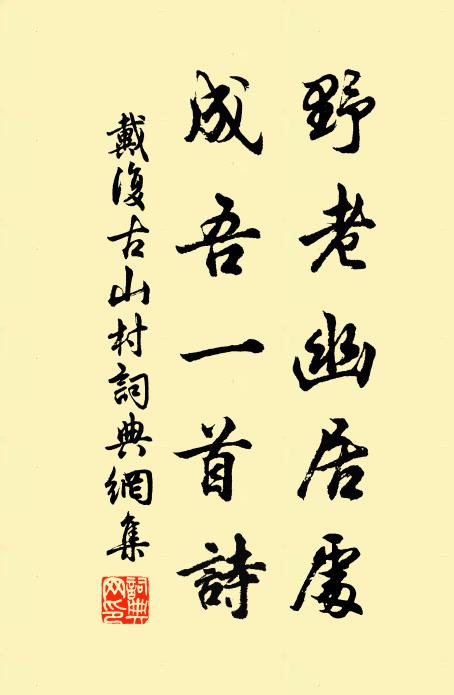 野老幽居處
成吾一首詩
戴復古山村詞典網集
詞典網印